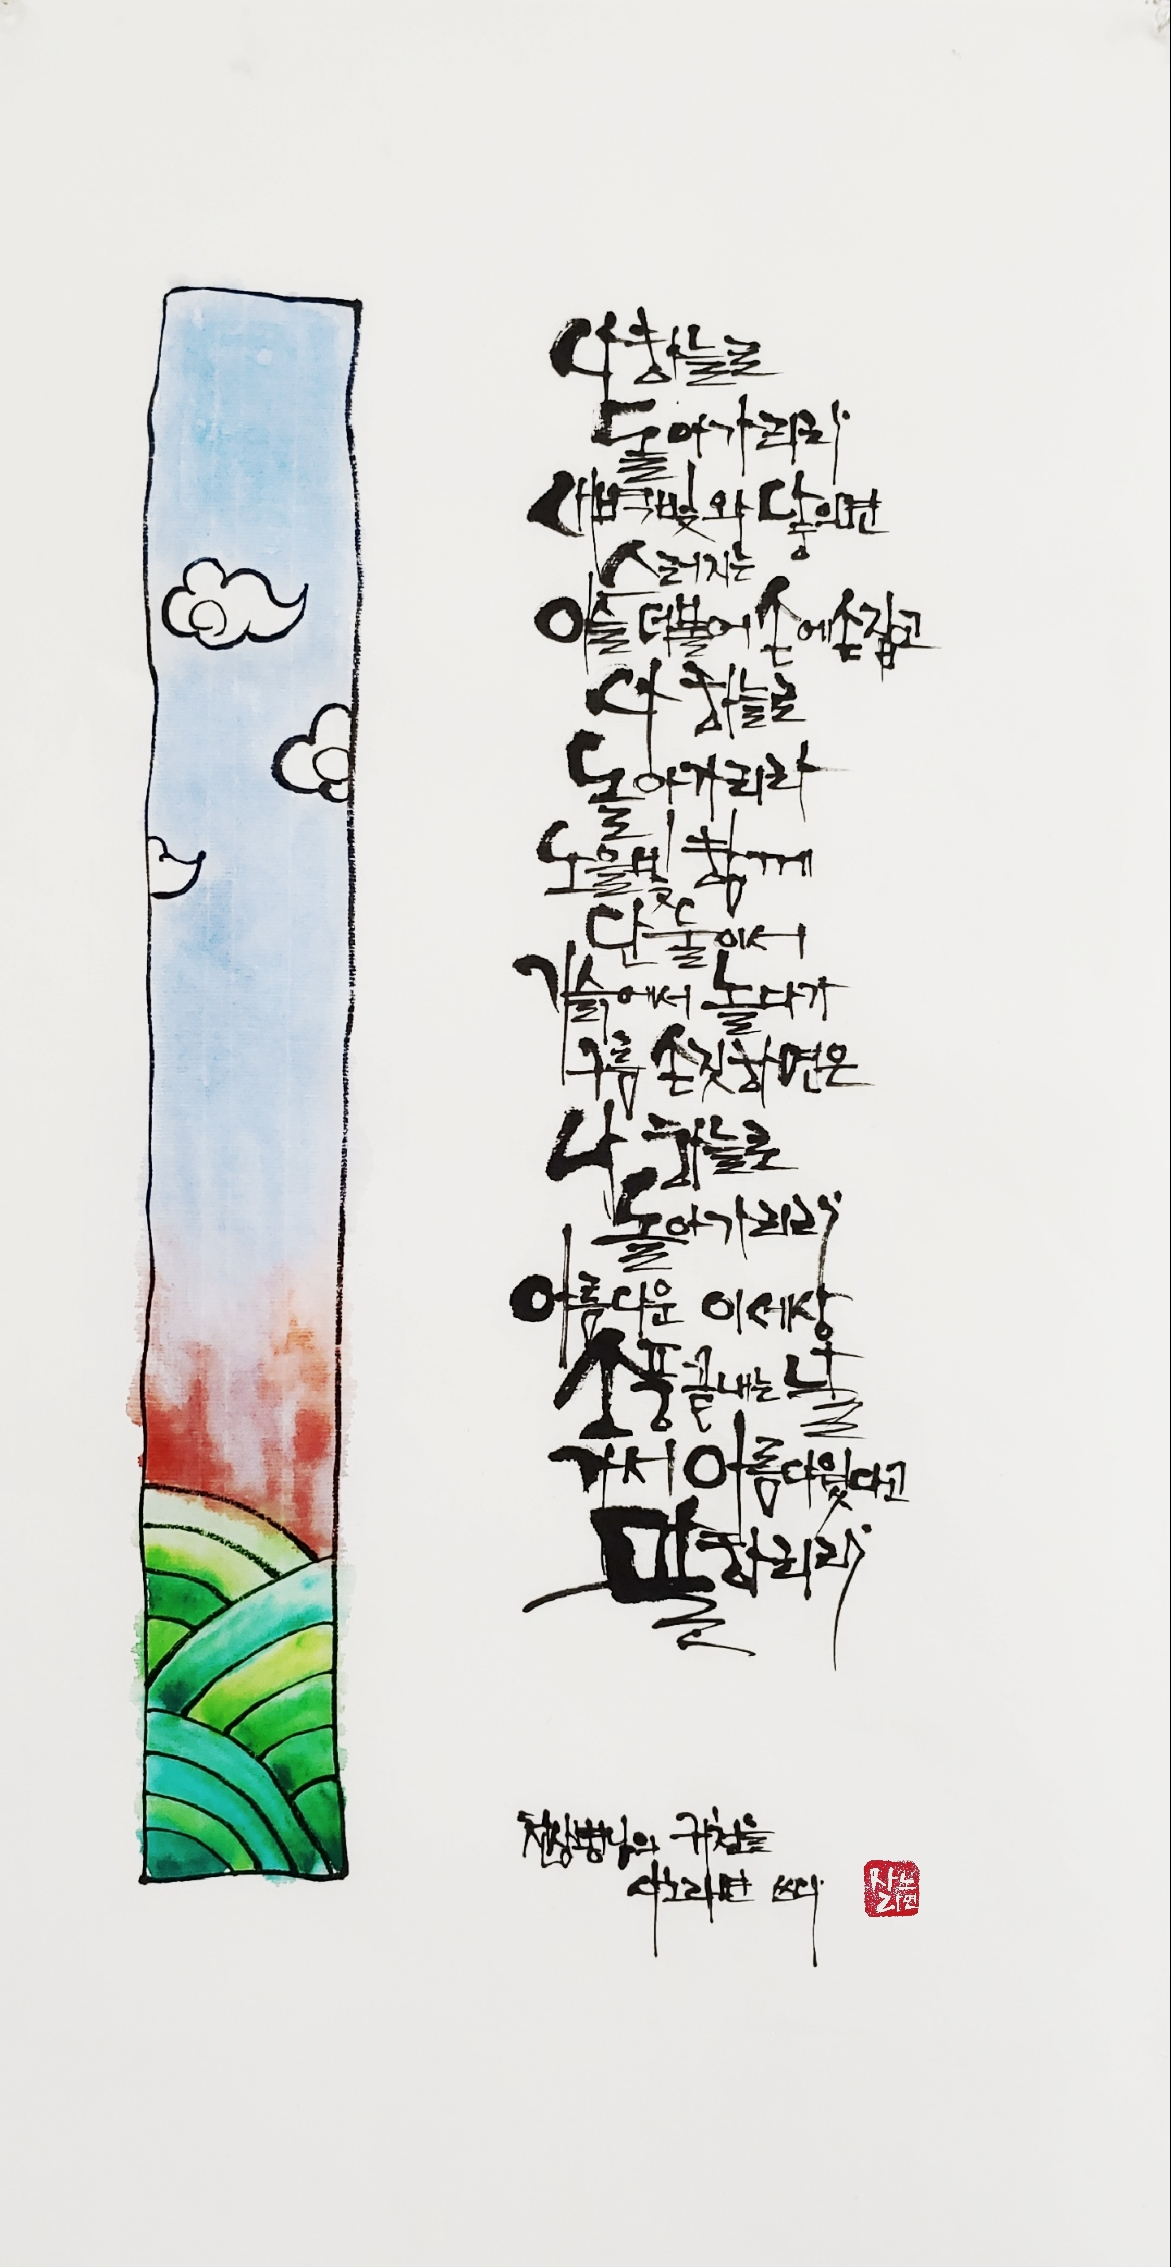 나 하늘로
돌아가리라
새벽빛 와 닿으면
스러지는
이슬 더불어 손에 손잡고
나 하늘로
돌아가리라
노을빛 함께
단 둘이서
기슭에서 놀다가
구름 손짓하면은
나 하늘로
돌아가리라
아름다운 이 세상
소풍 끝내는 날
가서 아름다웠다고
말하리라
천상병님의 귀천을
사노라면 쓰다
사노
라면